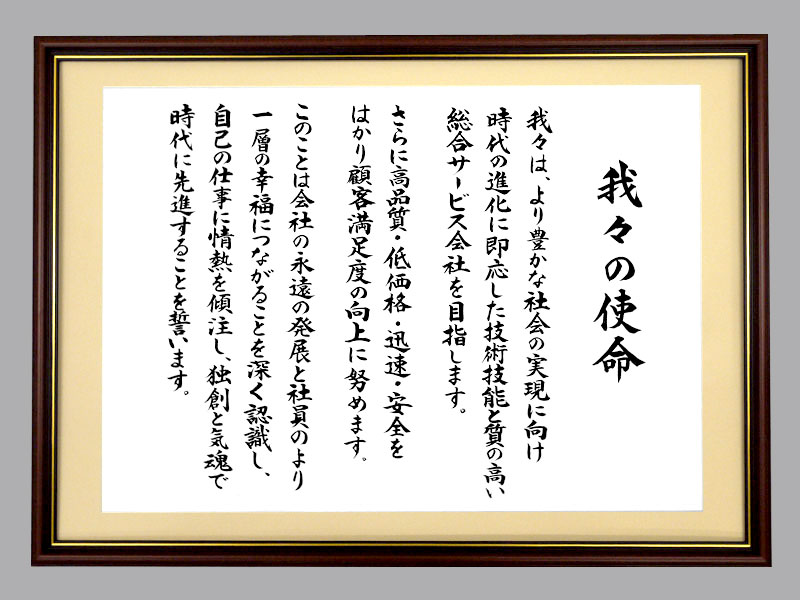 我々の使命
我々は、より豊かな社会の実現に向け
時代の進化に即応した技術技能と質の高い
総合サービス会社を目指します。
さらに高品質・低価格・迅速・安全を
はかり顧客満足度の向上に努めます。
このことは会社の永遠の発展と社員のより
一層の幸福につながることを深く認識し、
自己の仕事に情熱を傾注し、独創と気魂で
時代に先進することを誓います。